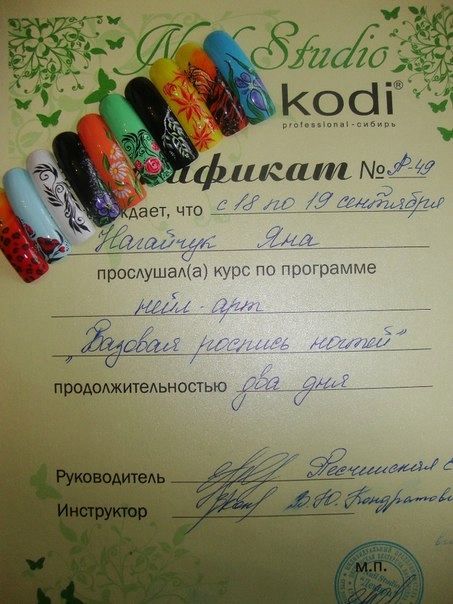 Nail Studio
kodi®
professional-сибирь
ификат № А-49
ждает, что с 18 по 19 сентября
Нагайчук Яна
прослушал(а) курс по программе
нейл-арт
„Базовая роспись ногтей"
продолжительностью два дня
Руководитель
Инструктор В.Ю. Кондратов
М.П.